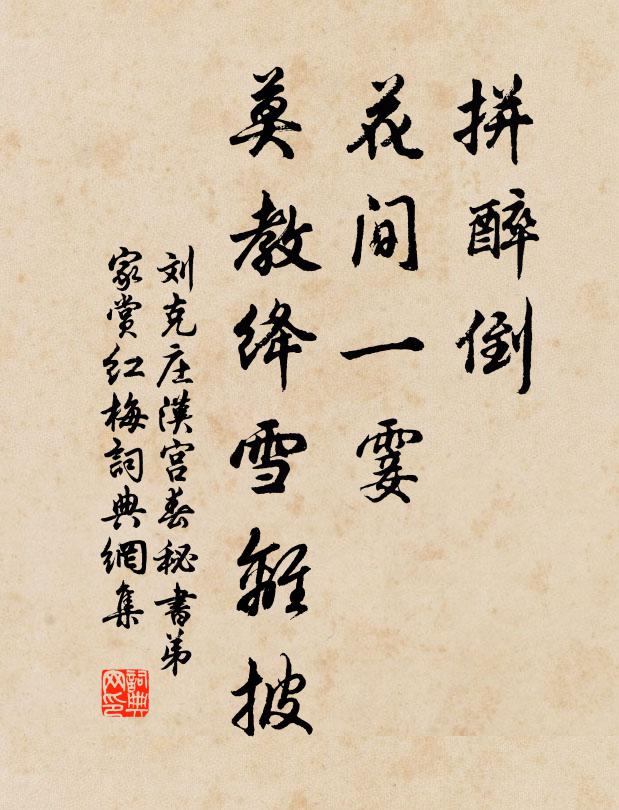 拼醉倒
花间一霎
莫教绛雪离披
刘克庄汉宫春秘书弟
家赏红梅词典网集
詞典
网印